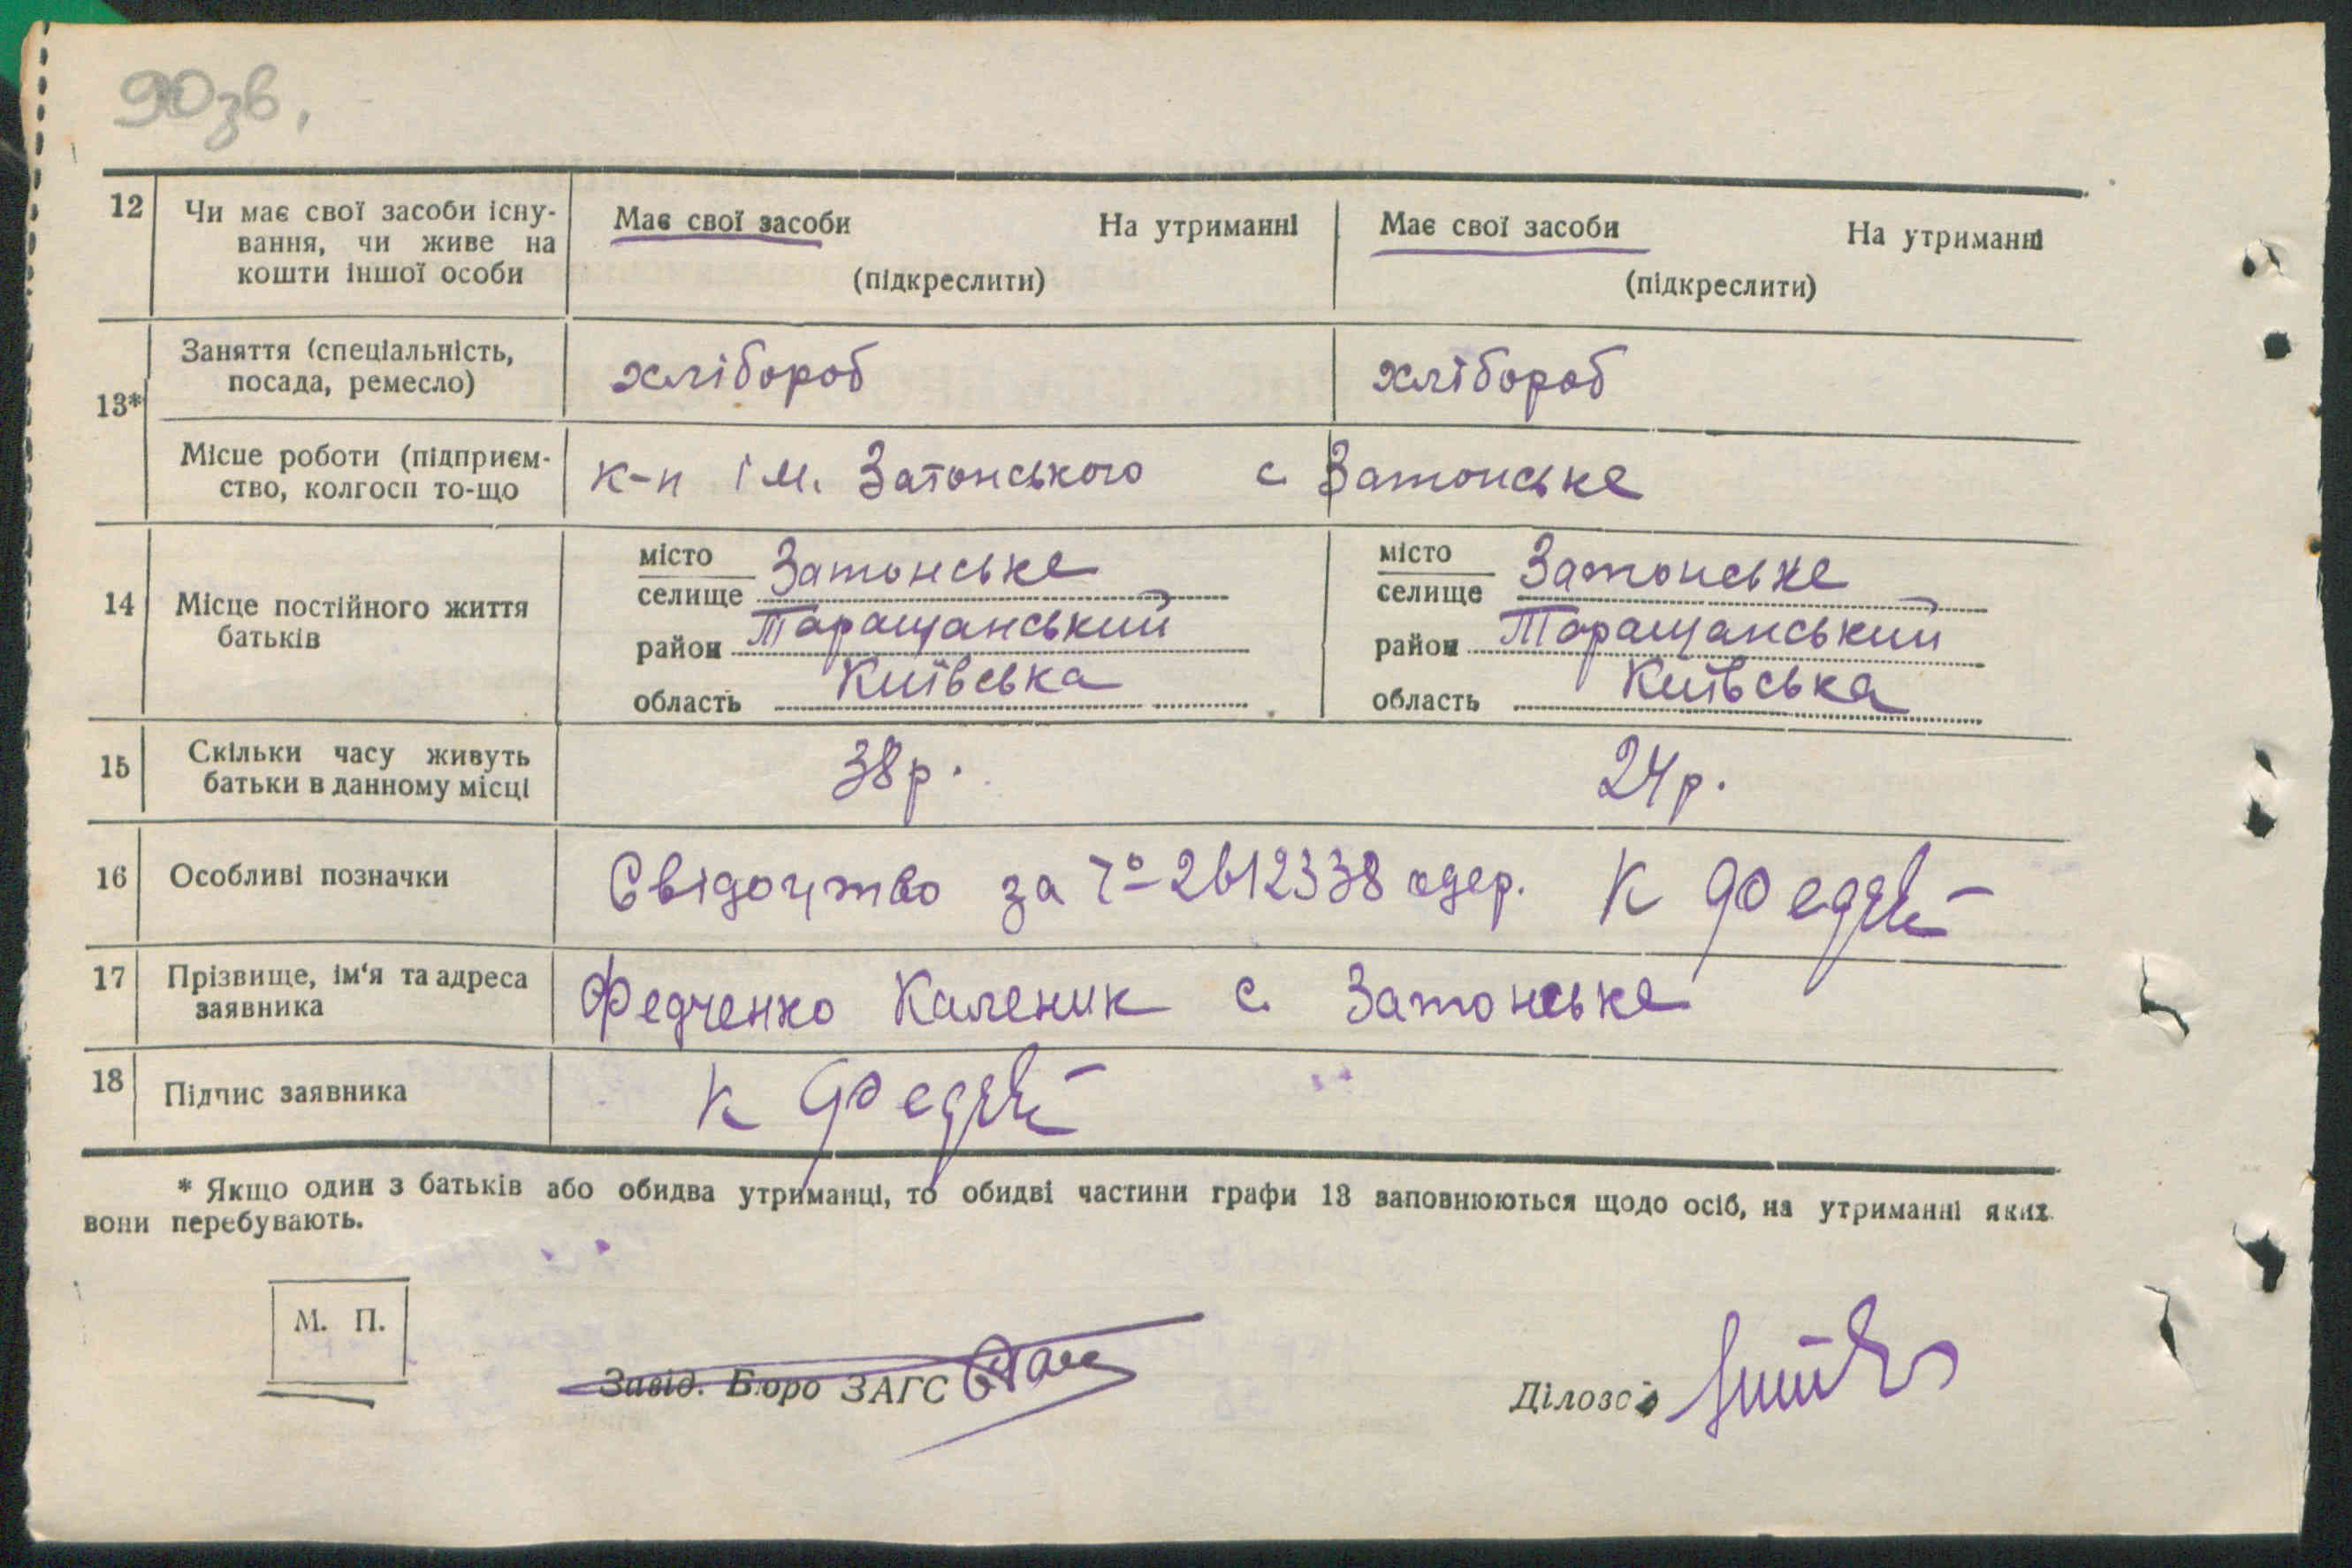 90 зв.
12 Чи має свої засоби існу-
вання, чи живе на
кошти іншої особи
Має свої засоби На утриманні
(підкреслити)
Має свої засоби На утриманні
(підкреслити)
13*
Заняття (спеціальність,
посада, ремесло)
хлібороб
хлібороб
Місце роботи (підприєм-
ство, колгосп то-що
к-п ім. Затонського с Затонське
14 Місце постійного життя
батьків
місто
селище Затонське
район Таращанський
область Київська
місто
селище Затонське
район Таращанський
область Київська
15 Скільки часу живуть
батьки в данному місці
38 р.
24 р.
16 Особливі позначки
Свідоцтво за 2612338 одер. К
17 Прізвище, ім'я та адреса
заявника
Федченко Каленик с. Затонське
18 Підпис заявника
К
* Якщо один з батьків або обидва утриманці, то обидві частини графи 13 заповнюються щодо осіб, на утриманні яких
вони перебувають.
М. П.
Завід. Бюро ЗАГС
Ділов